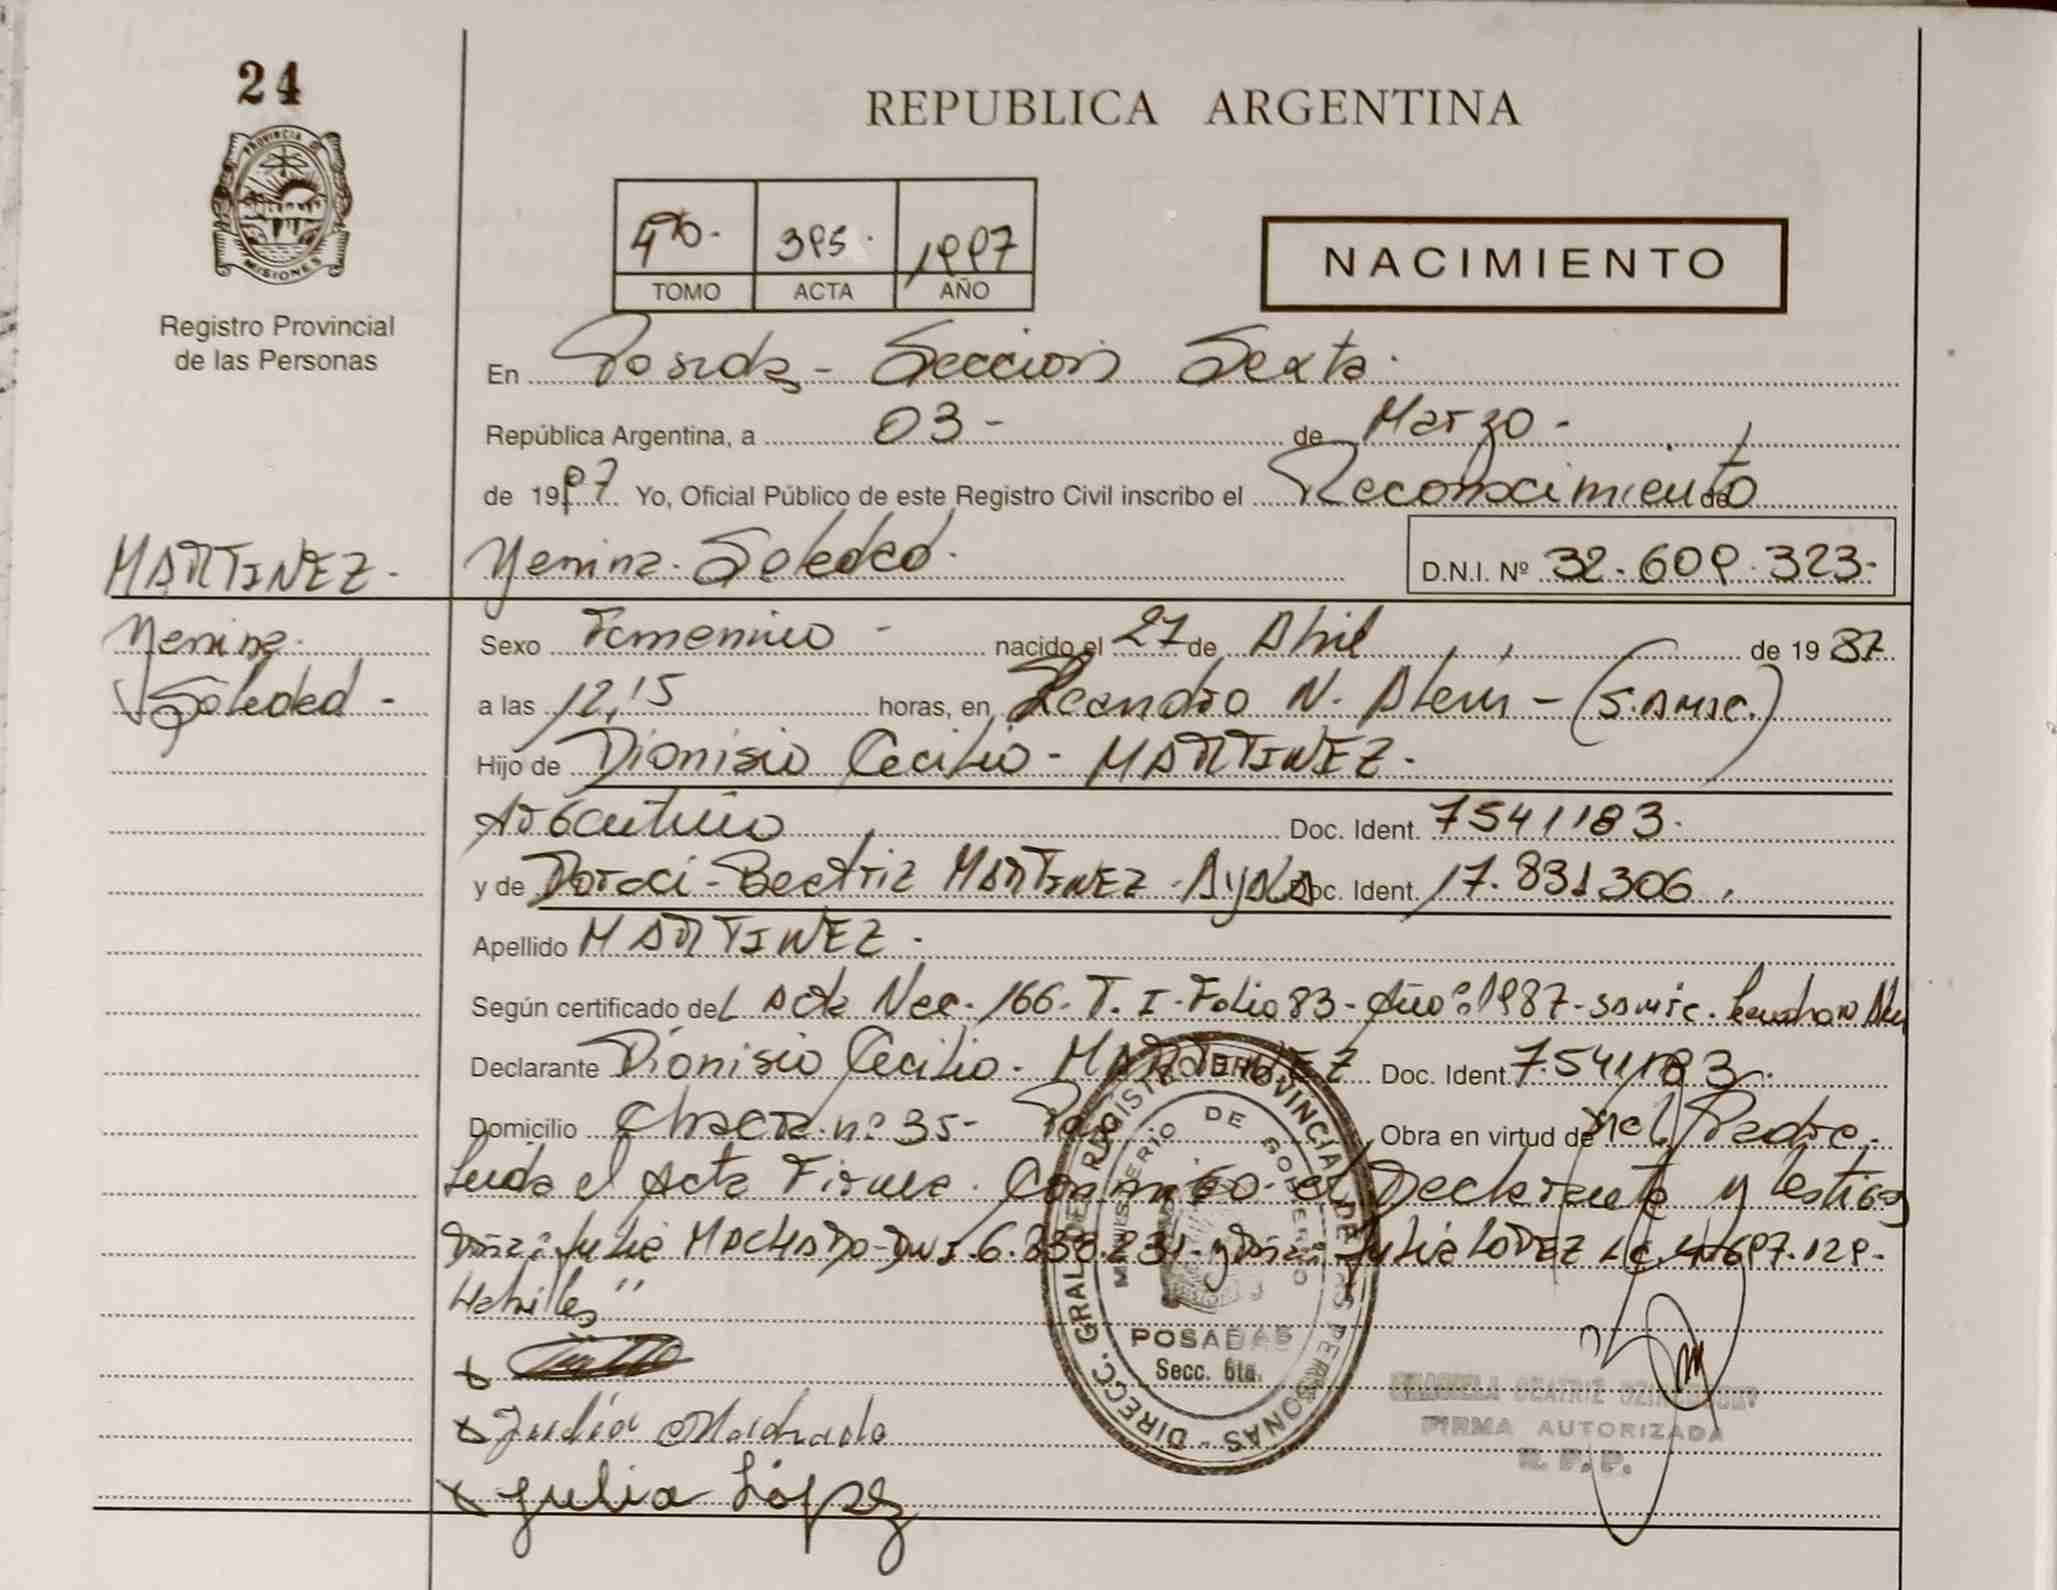 24
REPUBLICA ARGENTINA
PROVINCIA DE
MISIONES
Registro Provincial
de las Personas
4to. 395. 1997
TOMO ACTA AÑO
NACIMIENTO
En Posadas - Sección Sexta.
República Argentina, a 03 - de Marzo -
de 1997 Yo, Oficial Público de este Registro Civil inscribo el Reconocimiento de
MARTINEZ - Yenina Soledad. D.N.I. Nº 32.609.323-
Yenina Sexo Femenino - nacido el 27 de Abril de 19 87
Soledad - a las 12,15 horas, en Leandro N. Alem - (S.AMIC.)
Hijo de Dionisio Cecilio - MARTINEZ -
Argentino Doc. Ident. 7541183.
y de Doraci - Beatriz MARTINEZ - Ayala Doc. Ident. 17.831306.
Apellido MARTINEZ.
Según certificado del Acta Nac. 166 - T. I - Folio 83 - Año: 1987 - SAMIC. Leandro N Alem
Declarante Dionisio Cecilio - MARTINEZ Doc. Ident. 7.541183.
Domicilio Chacra nº 35 - Obra en virtud de ser el Padre.
Leida el Acta Firma Conmigo el Declarante y testigos
Doña: Julia MACHADO - DNI. 6.338.231 y Doña: Julia LOPEZ LC. 4.697.129-
Habiles"
Julia Machado
Julia López
DIRECC. GRAL DE REGISTRO PROVINCIAL DE LAS PERSONAS
MINISTERIO DE GOBIERNO
POSADAS
Secc. 6ta.
GRACIELA BEATRIZ
FIRMA AUTORIZADA
R. P. P.